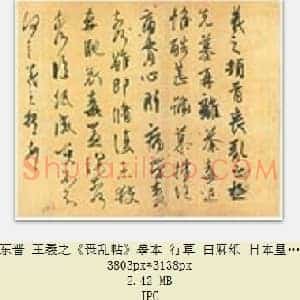 羲之頓首喪亂之極
先墓再離荼毒追
惟酷甚號慕摧絕
痛貫心肝痛當奈何
奈何雖即脩復未獲
奔馳哀毒益深奈何
奈何臨紙感哽不知
何言羲之頓首頓首
东晋 王羲之《丧乱帖》摹本 行草 白麻纸 日本皇…
3803px*3138px
2.42 MB
JPG